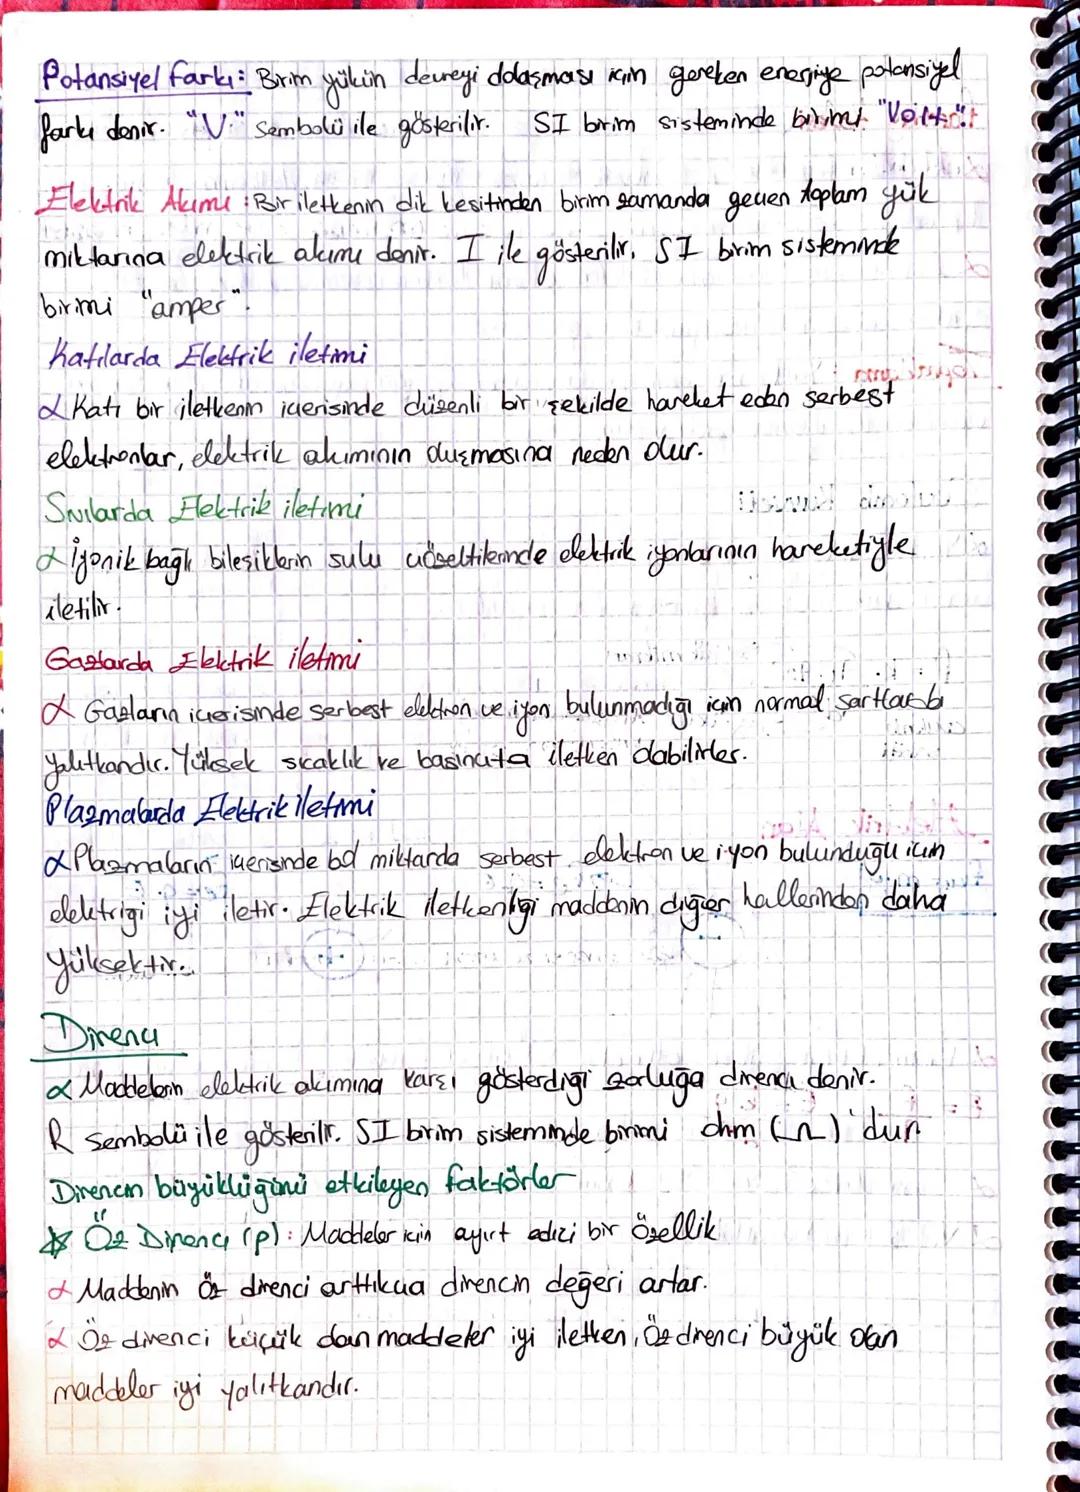 Potansiyel farkı: Birim yükün devreyi dolaşması için gereken enerjiye potansiyel
farkı denir. "V" Sembolü ile gösterilir. SI birim sisteminde birimi "Volt".
Elektrik Akımı: Bir iletkenin dik kesitinden birim zamanda geçen toplam yük
miktarına elektrik akımı denir. I ile gösterilir, SI birim sisteminde
birimi "amper".
Katılarda Elektrik iletimi
α Katı bir iletkenin içerisinde düzenli bir şekilde hareket eden serbest
elektronlar, elektrik akımının oluşmasına neden olur.
Sıvılarda Elektrik iletimi
α İyonik bağlı bileşiklerin sulu çözeltilerinde elektrik iyonlarının hareketiyle
iletilir.
Gazlarda Elektrik iletimi
α Gazların içerisinde serbest elektron ve iyon bulunmadığı için normal şartlarda
yalıtkandır. Yüksek sıcaklık ve basınçta iletken olabilirler.
Plazmalarda Elektrik iletimi
α Plazmaların içerisinde bol miktarda serbest elektron ve iyon bulunduğu için
elektriği iyi iletir. Elektrik iletkenliği maddenin diğer hallerinden daha
yüksektir.
Direnç
α Maddelerin elektrik akımına karşı gösterdiği zorluğa direnç denir.
R sembolü ile gösterilir. SI birim sisteminde birimi ohm (Ω)'dur.
Direncin büyüklüğünü etkileyen faktörler
☆ Öz Direnç (ρ): Maddeler için ayırt edici bir özellik
α Maddenin öz direnci arttıkça direncin değeri artar.
α Öz direnci küçük olan maddeler iyi iletken, Öz direnci büyük olan
maddeler iyi yalıtkandır.